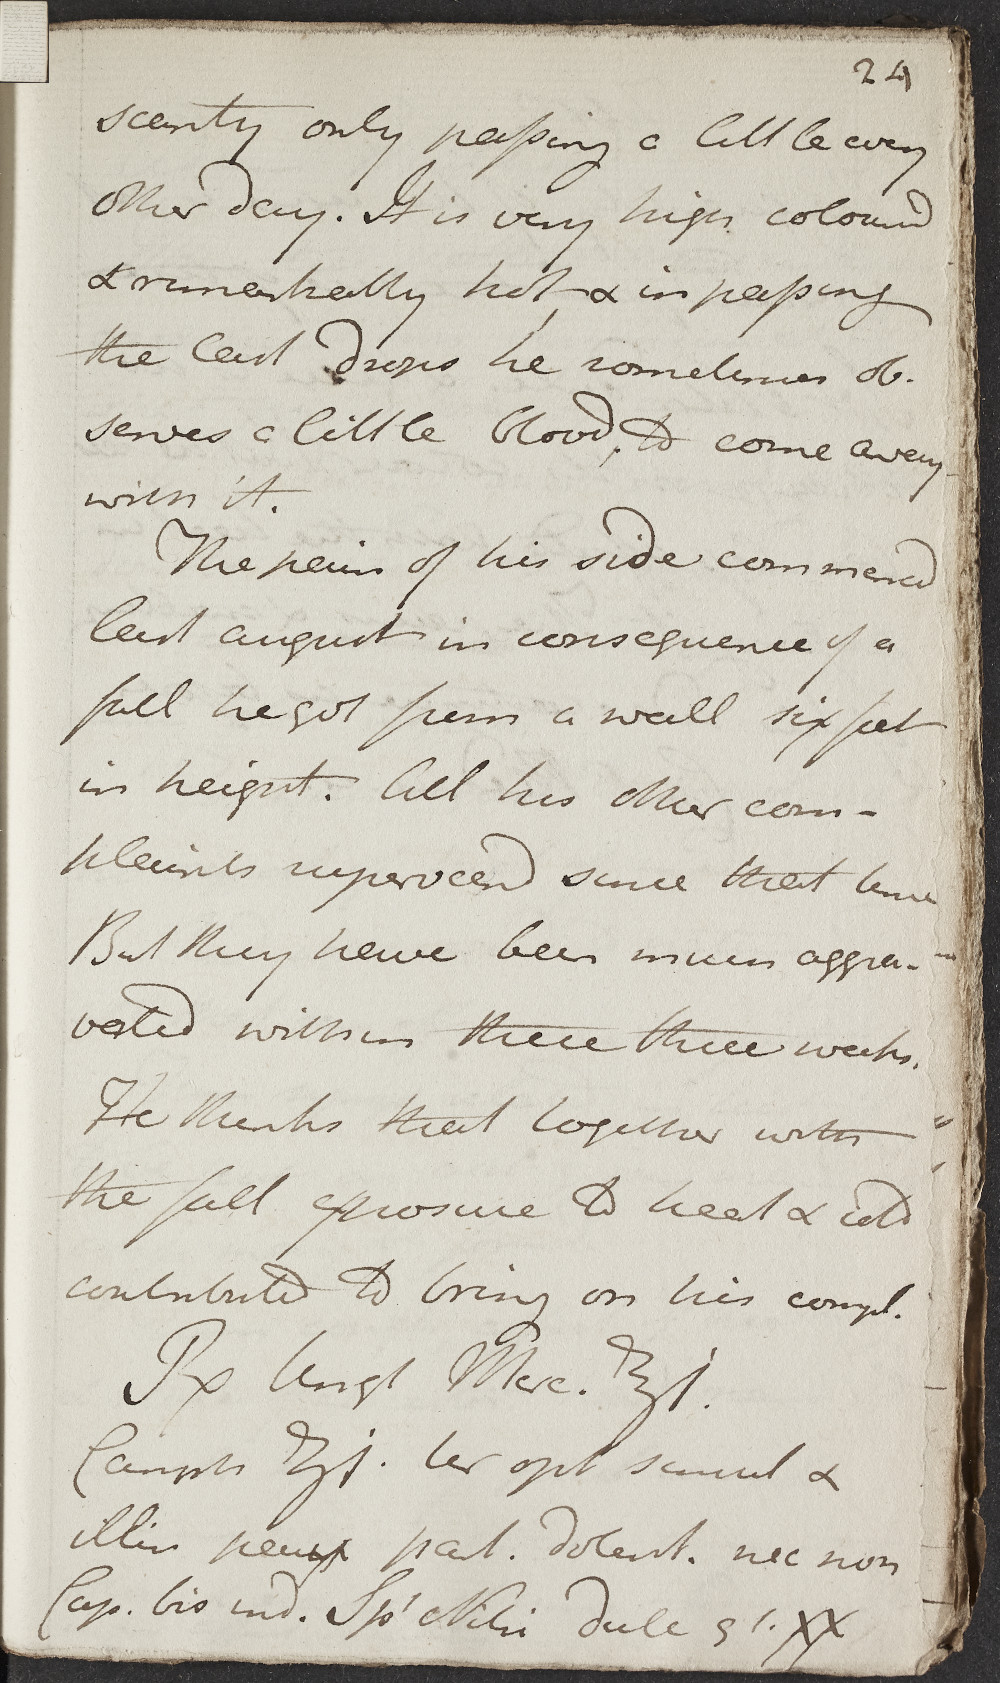 24
scanty only passing a little every
other day. It is very high coloured
& remarkably hot, & in passing
the last drops he sometimes ob-
serves a little blood, to come away
with it.
The pain of his side commenced
last august in consequence of a
fall he got from a wall six feet
in height. All his other com-
plaints supervened since that time
But they have been much aggra-
vated within these three weeks.
He thinks that together with
the fall exposure to heat & cold
contributed to bring on his compl.
Rx Ungt Merc. ʒj.
Camph ʒj. ter opt simul &
illin pauxx part. dolent. nec non
Cap. bis ind. Sp! Nitri dulc gt. XX